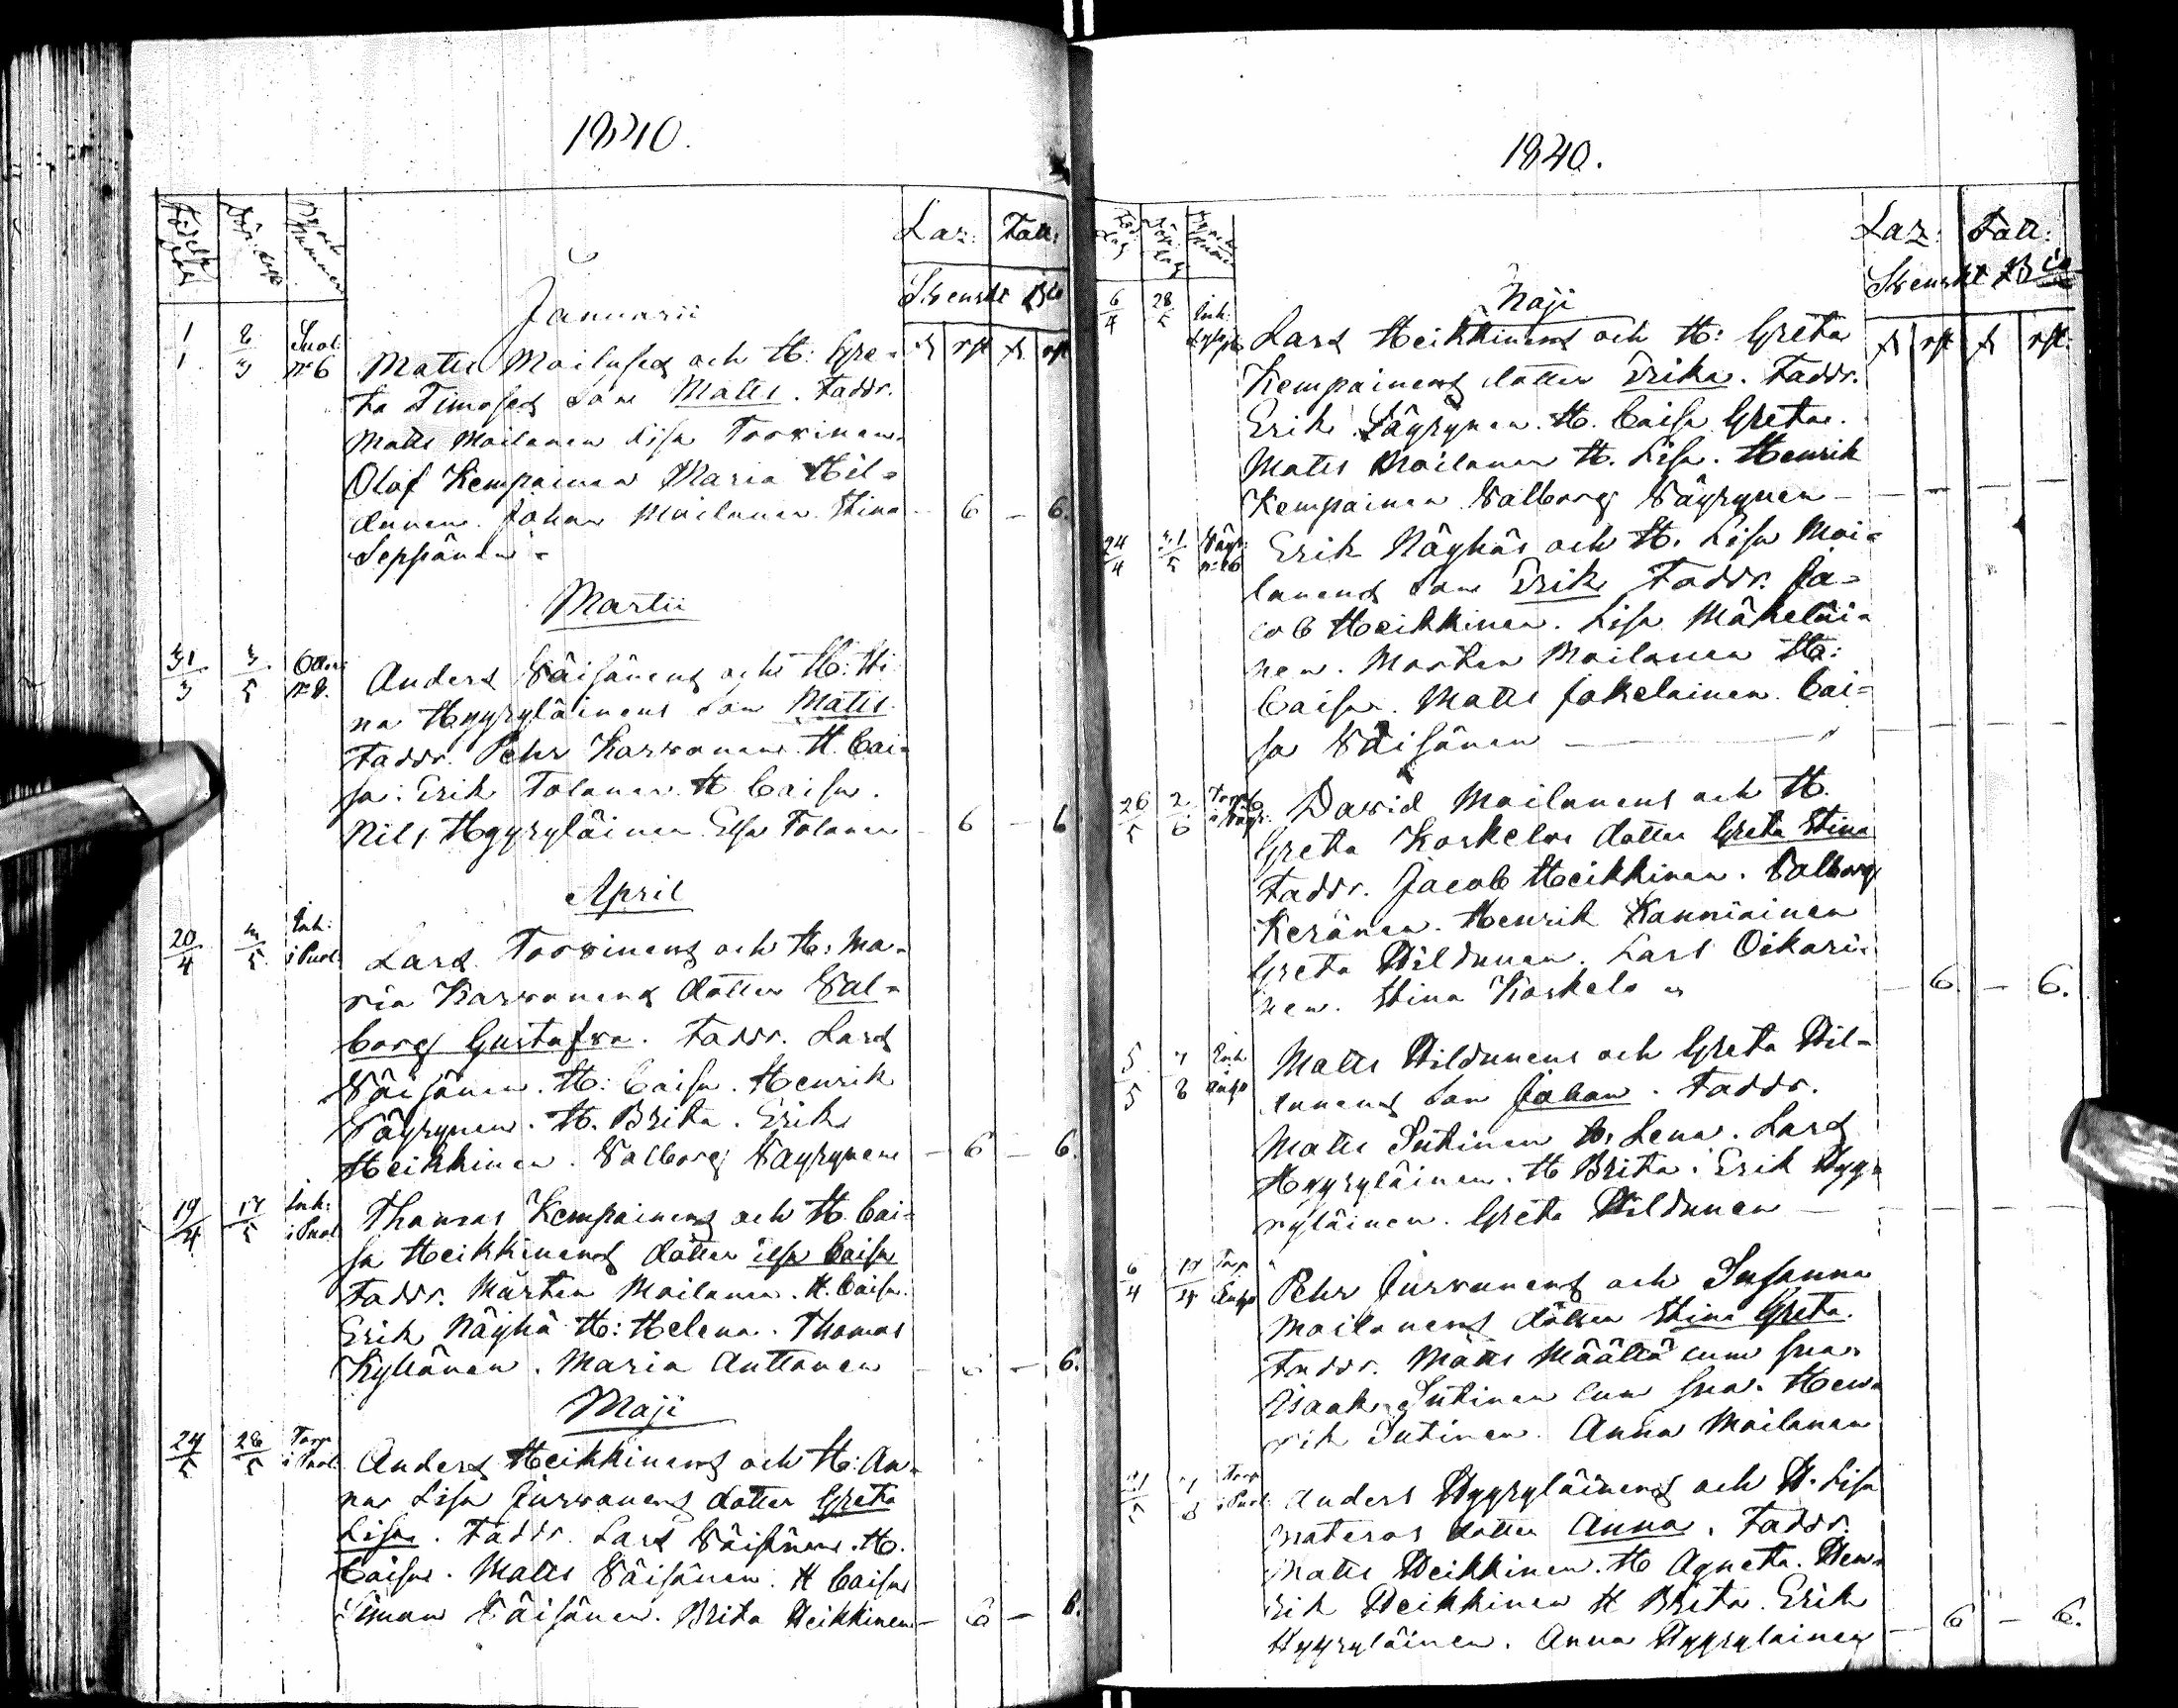 1840.
Laz: Fatt:
Svenskt
Januarii
1/1 Suol: N:o 6 Matts Moilasen och H: Gre=
ta Timoses son Matts. Faddr.
Matts Moilanen Lisa Torvinen.
Olof Kempainen Maria Hil=
dunen. Johan Moilanen Stina – 6 – 6.
Seppänen
Martii
31/3 3/5 N:o 8. Anders Väisänens och H: Sti
na Hyyryläinens son Matts
Faddr. Pehr Karvanen H. Cai=
sa. Erik Tolanen H Caisa.
Nils Hyyryläinen Elsa Tolanen – 6 – 6
April
20/4 Inh: i Puol: Lars Torvinens och H: Ma=
ria Karvanens dotter Val=
borg Gustafva. Faddr. Lars
Väisänen. H: Caisa. Henrik
Väyrynen. H. Brita. Erik
Heikkinen. Valborg Väyrynen – 6 – 6.
19/4 17/5 Inh: i Puol. Thomas Kempainens och H. Cai=
sa Heikkinens dotter Elsa Caisa
Faddr. Mårten Moilanen. H. Caisa.
Erik Näyhä H: Helena. Thomas
Kyllönen. Maria Anttonen – 6 – 6.
Maji
24/5 28/5 Torp i Puol. Anders Heikkinens och H: An=
na Lisa Jurvanens dotter Greta
Lisa. Faddr. Lars Väisänen. H.
Caisa. Matts Väisänen. H Caisa
Simon Väisänen. Brita Heikkinen – 6 – 6.
1840.
Laz: Fatt:
Svenskt
Maji
28/5 Inh: Lars Heikkinens och H: Greta
Kempainens dotter Erika. Faddr.
Erik Väyrynen. H. Caisa Greta.
Matts Moilanen H. Lisa. Henrik
Kempainen Valborg Väyrynen –
24/4 Väyr: Erik Näyhäs och H. Lisa Moi=
lanens son Erik Faddr. Ja=
cob Heikkinen. Lisa Mäkeläi=
nen. Mårten Moilanen H:
Caisa. Matts Jokelainen. Cai=
sa Väisänen
26/5 2/6 Torp David Moilanens och H.
Greta Koskelos dotter Greta Stina
Faddr. Jacob Heikkinen. Valborg
Keränen. Henrik Kanniainen
Greta Hildunen. Lars Oikari=
nen. Stina Koskelo – 6. – 6.
5/5 Inh. Matts Hildunens och Greta Hil=
dunens son Johan. Faddr.
Matts Sutinen H: Lena. Lars
Hyyryläinen. H Brita. Erik Hyy=
ryläinen. Greta Hildunen –
6/4 Torp Pehr Jurvanens och Susanna
Moilanens dotter Stina Greta.
Faddr. Matts Määttä cum sua.
Isaak Sutinen cum sua. Hen=
rik Sutinen. Anna Moilanen
Torp i Puol Anders Hyyryläinens och H. Lisa
Materos dotter Anna. Faddr.
Matts Heikkinen. H Agneta. Hen=
rik Heikkinen H Brita. Erik
Hyyryläinen. Anna Hyyryläinen – 6 – 6.